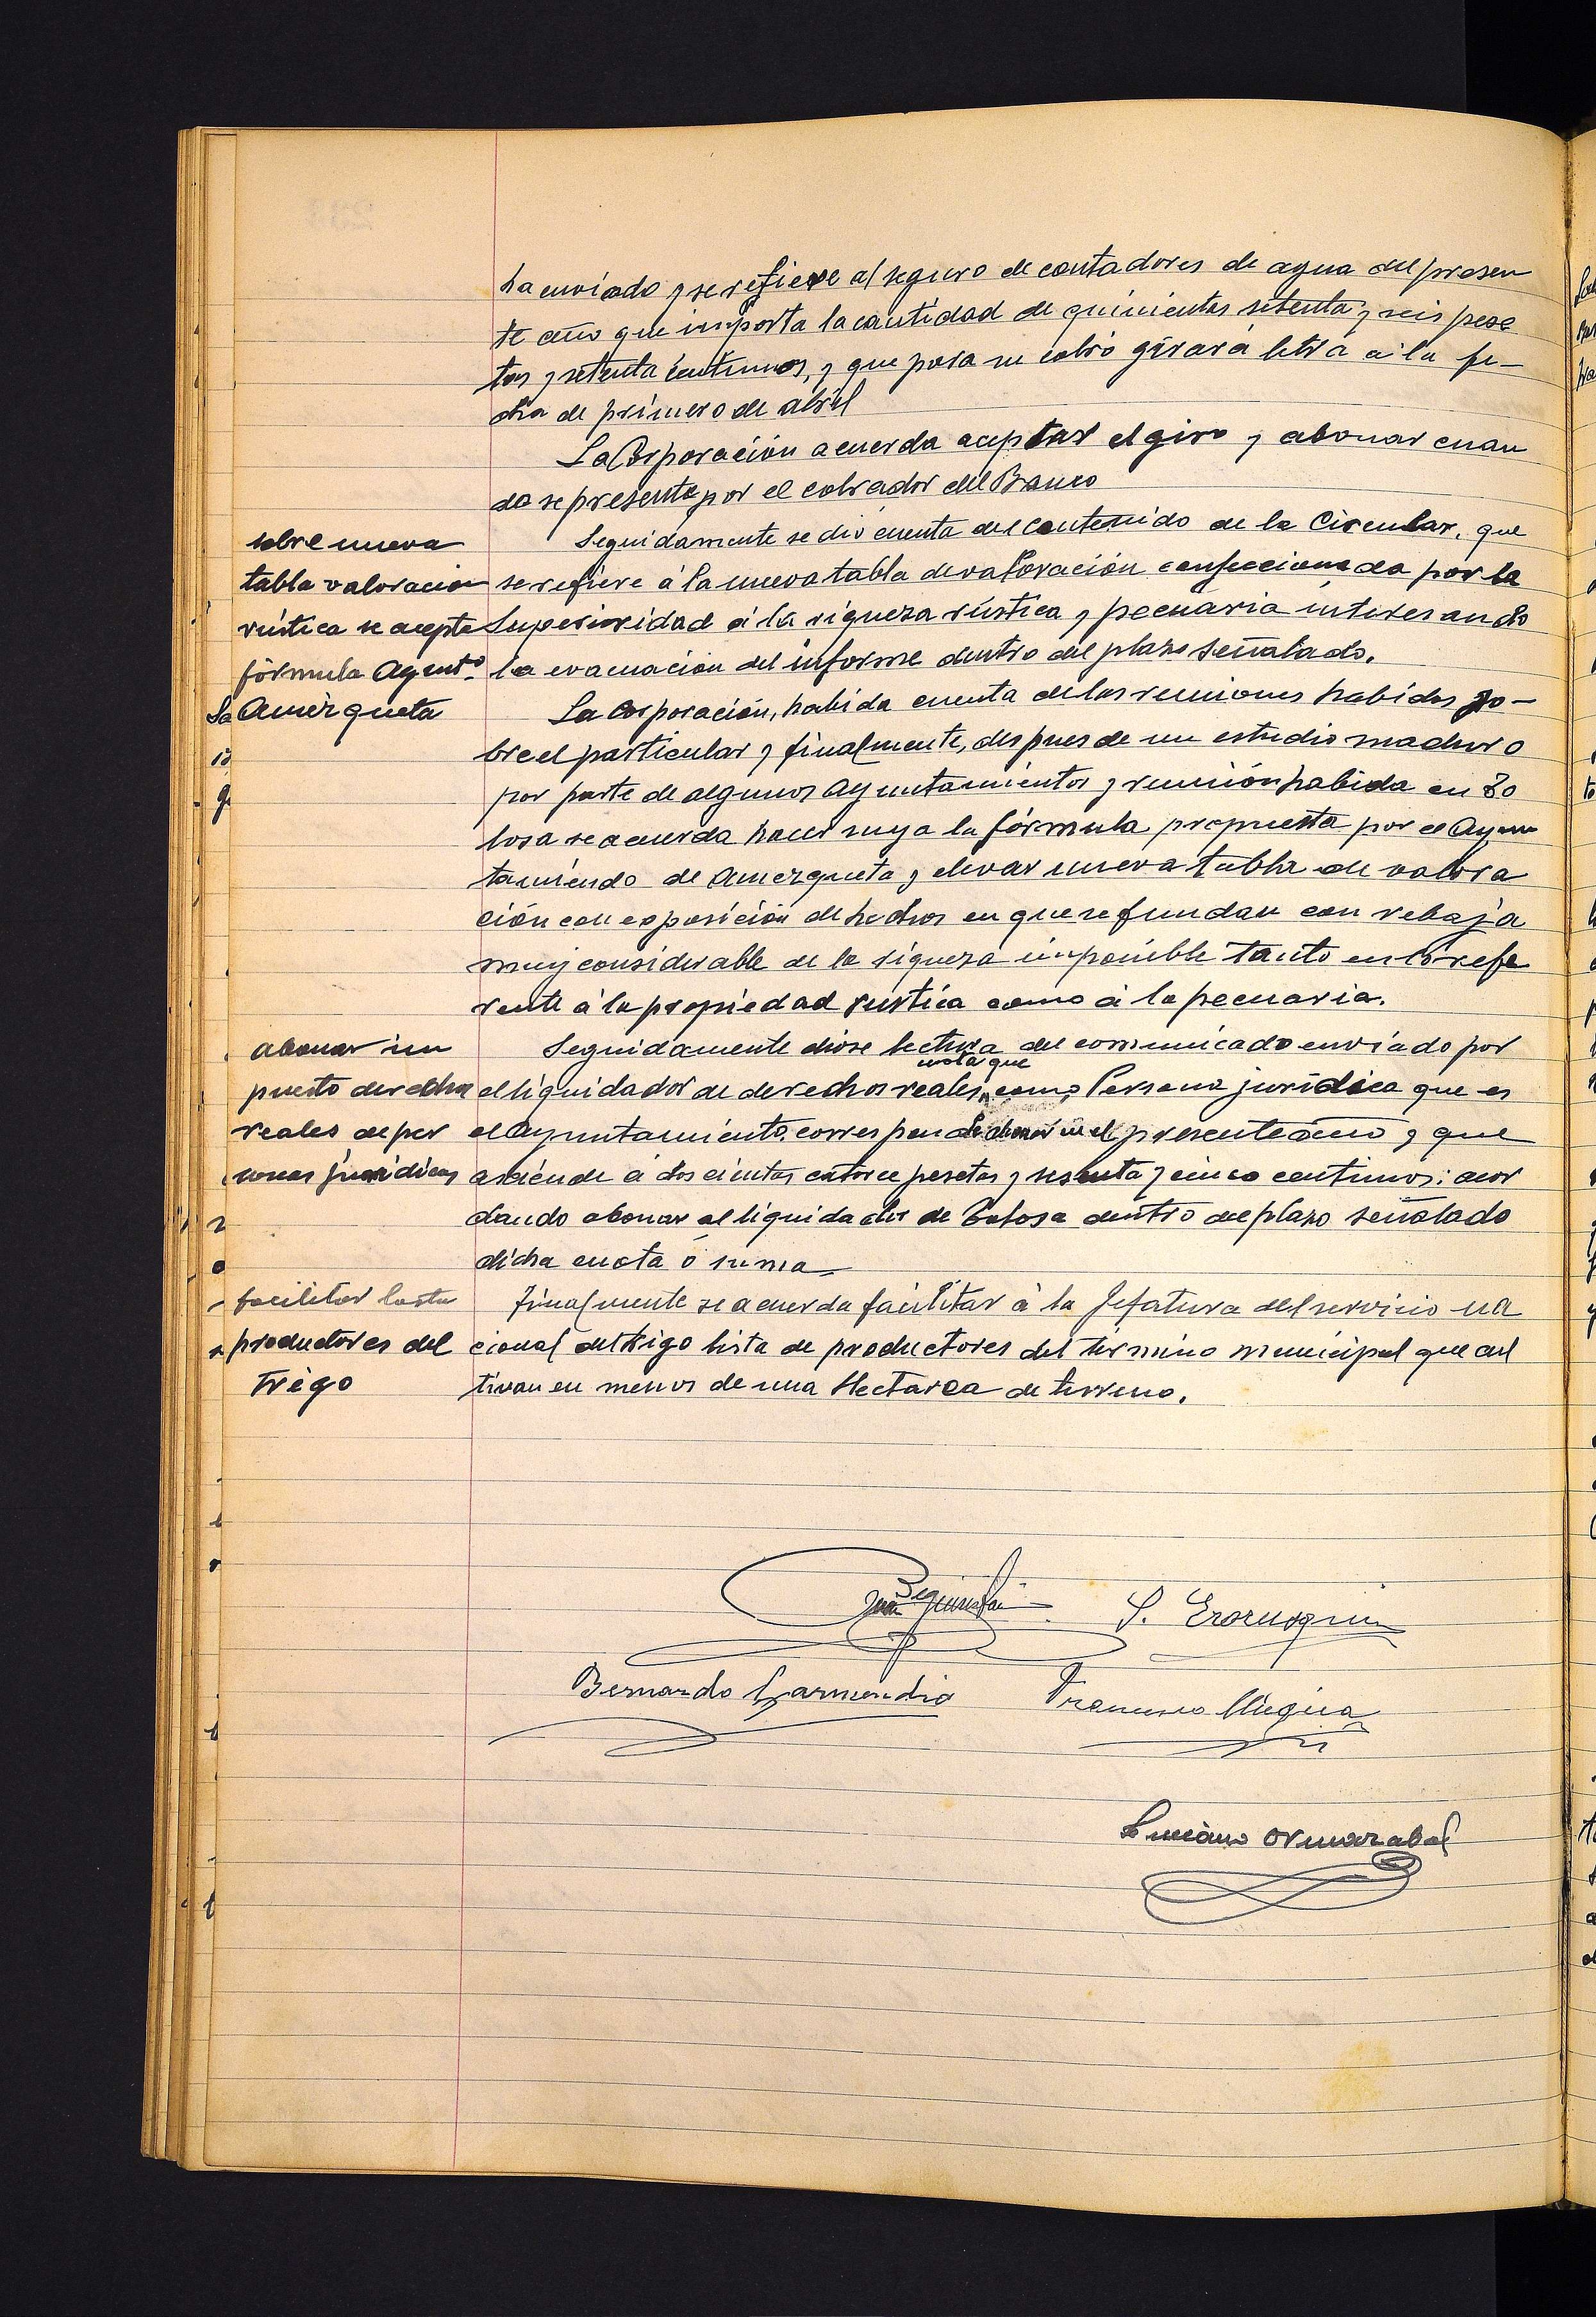 ha enviado y se refiere al seguro de contadores de agua del presen
te año que importa la cantidad de quinientas setenta y seis pese
tas y setenta centimos, y que para su cobro girará letra a la fe-
cha de primero de abril
La Corporación acuerda aceptar el giro y abonar cuan
do se presente por el cobrador del Banco
sobre nueva
tabla valoracion
rústica se acepta
fórmula Ayento
Amezqueta
Seguidamente se dió cuenta del contenido de la Circular, que
se refiere á la nueva tabla de valoración confeccionada por la
Superioridad á la riqueza rústica y pecuaria interesando
la evacuación del informe dentro del plazo señalado.
La Corporación, habida cuenta de las reuniones habidas so-
bre el particular y finalmente, despues de un estudio maduro
por parte de algunos Ayuntamientos y reunión habida en To
losa se acuerda hacer suya la fórmula propuesta por el Ayun
tamiendo de Amezqueta y elevar nueva tabla de valora
ción con exposición de hechos en que se fundan con rebaja
muy considerable de la riqueza imponible tanto en lo refe
rente á la propiedad rústica como á la pecuaria.
abonar im
puesto derechos
reales de per
sonas juridicas
Seguidamente dióse lectura del comunicado enviado por
cuota que
el liquidador de derechos reales, como Persona jurídica que es
el Ayuntamiento corresponde abonar en el presente año y que
asciende á doscientas catorce pesetas y sesenta y cinco centimos: acor
dando abonar al liquidador de Tolosa dentro del plazo señalado
dicha cuota ó suma
facilitar lista
productores del
Trigo
Finalmente se acuerda facilitar á la Jefatura del servicio na
cional del trigo lista de productores del término municipal que cul
tivan en menos de una Hectarea de terreno.
Juan
S. Erauzquin
Bernardo Garmendia
Francisco
Luciano Ormazabal